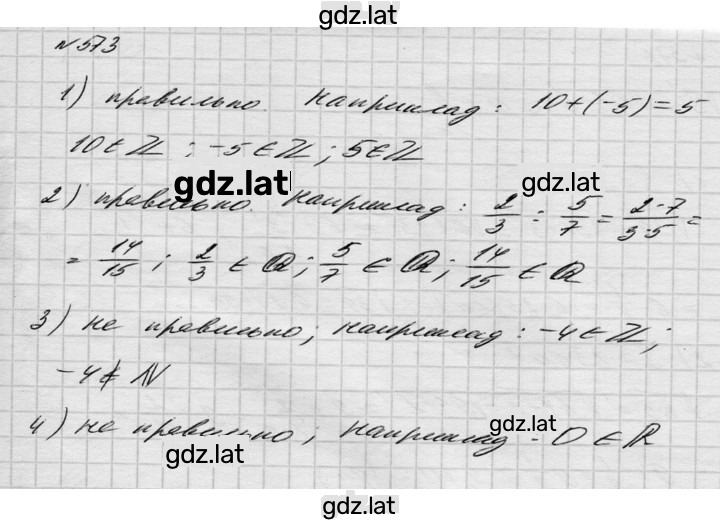 gdz.lat
№573
1) правильно. Наприклад: 10+(-5)=5
10∈ℤ; -5∈ℤ; 5∈ℤ
gdz.lat
2) правильно. Наприклад: 2/3 : 5/7 = 2·7/3·5 =
= 14/15; 2/3 ∈ ℚ; 5/7 ∈ ℚ; 14/15 ∈ ℚ
3) не правильно; наприклад: -4∈ℤ;
-4∉ N
4) не правильно; наприклад: 0∈ℝ
gdz.lat
gdz.lat
gdz.lat